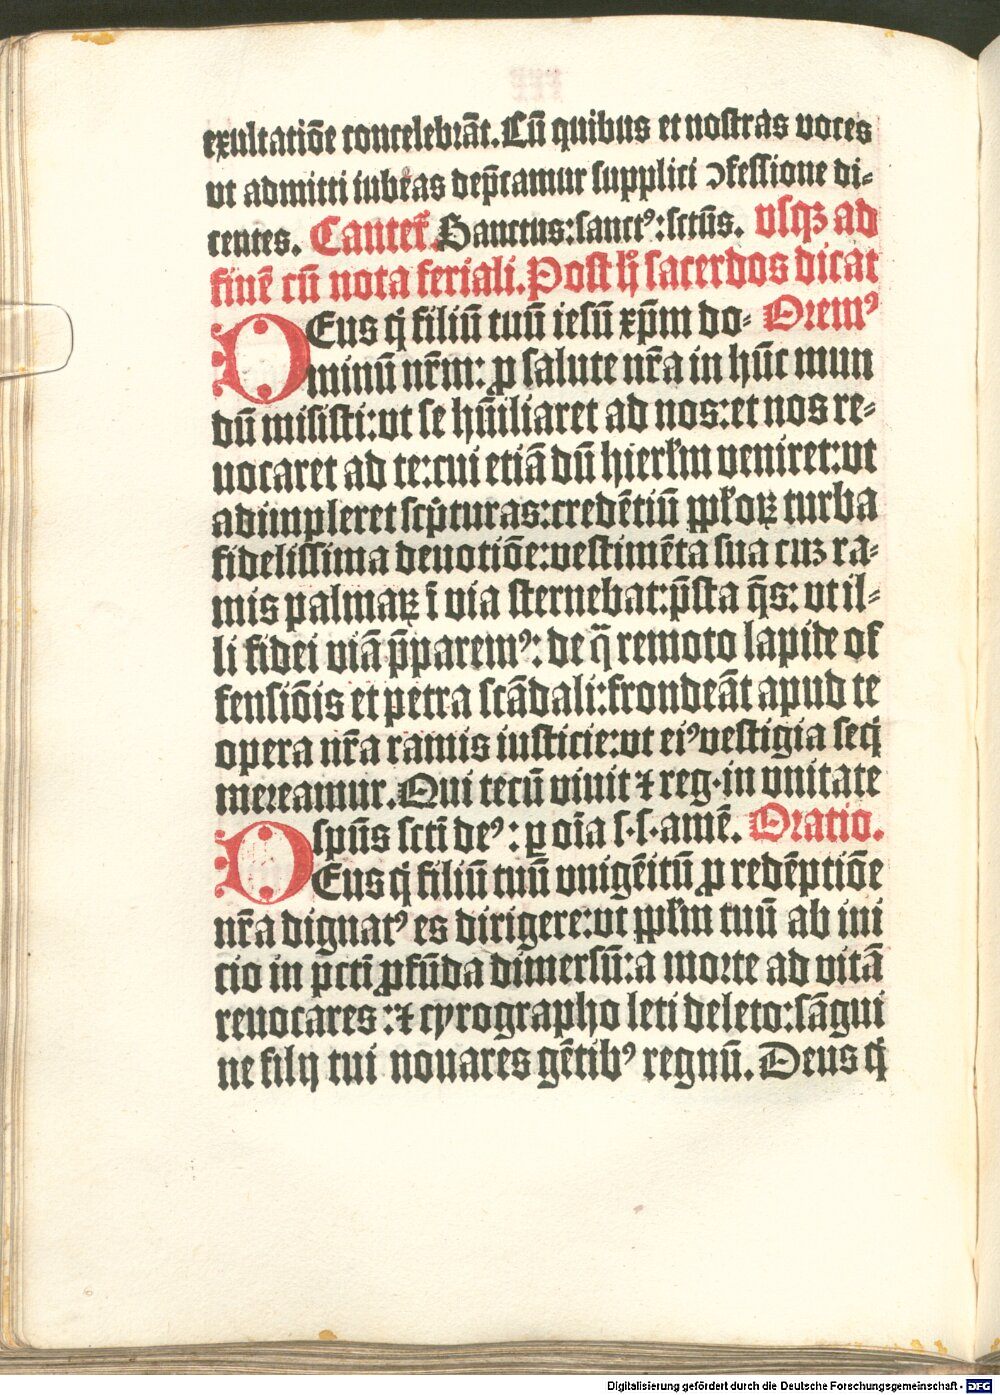 exultatiōe concelebrāt. Cū quibus et nostras voces
vt admitti iubeas dep̄camur supplici ꝯfessione di⸗
centes. Cantet᷑. Sanctus: sanctꝰ: sctūs. vsqꝫ ad
finē cū nota feriali. Post h̄ sacerdos dicat
DEus q̇ filiū tuū iesū xp̄m do⸗ Oremꝰ
minū nr̄m: ꝓ salute nr̄a in hūc mun
dū misisti: vt se hūiliaret ad nos: et nos re⸗
uocaret ad te: cui etiā dū hierl̄m veniret: vt
adimpleret scṗturas: credētiū ppl̄oꝝ turba
fidelissima deuotiōe: vestimēta sua cuꝫ ra⸗
mis palmaꝝ ī via sternebat: p̄sta q̄s: vt il⸗
li fidei viā p̄paremꝰ: de q̄ remoto lapide of
fensiōis et petra scādali: frondeāt apud te
opera nr̄a ramis iusticie: vt eiꝰ vestigia seq̇
mereamur. Qui tecū viuit ⁊ reg. in vnitate
spūs scti deꝰ: ꝑ oīa s. s. amē. Oratio.
DEus q̇ filiū tuū vnigēitū ꝓ redēptiōe
nr̄a dignatꝰ es dirigere: vt ppl̄m tuū ab ini
cio in p̄cti ꝓfūda dimersū: a morte ad vitā
reuocares: ⁊ cyrographo leti deleto: sāgui
ne filij tui nouares gētibꝰ regnū. Deus q̇
Digitalisierung gefördert durch die Deutsche Forschungsgemeinschaft - DFG